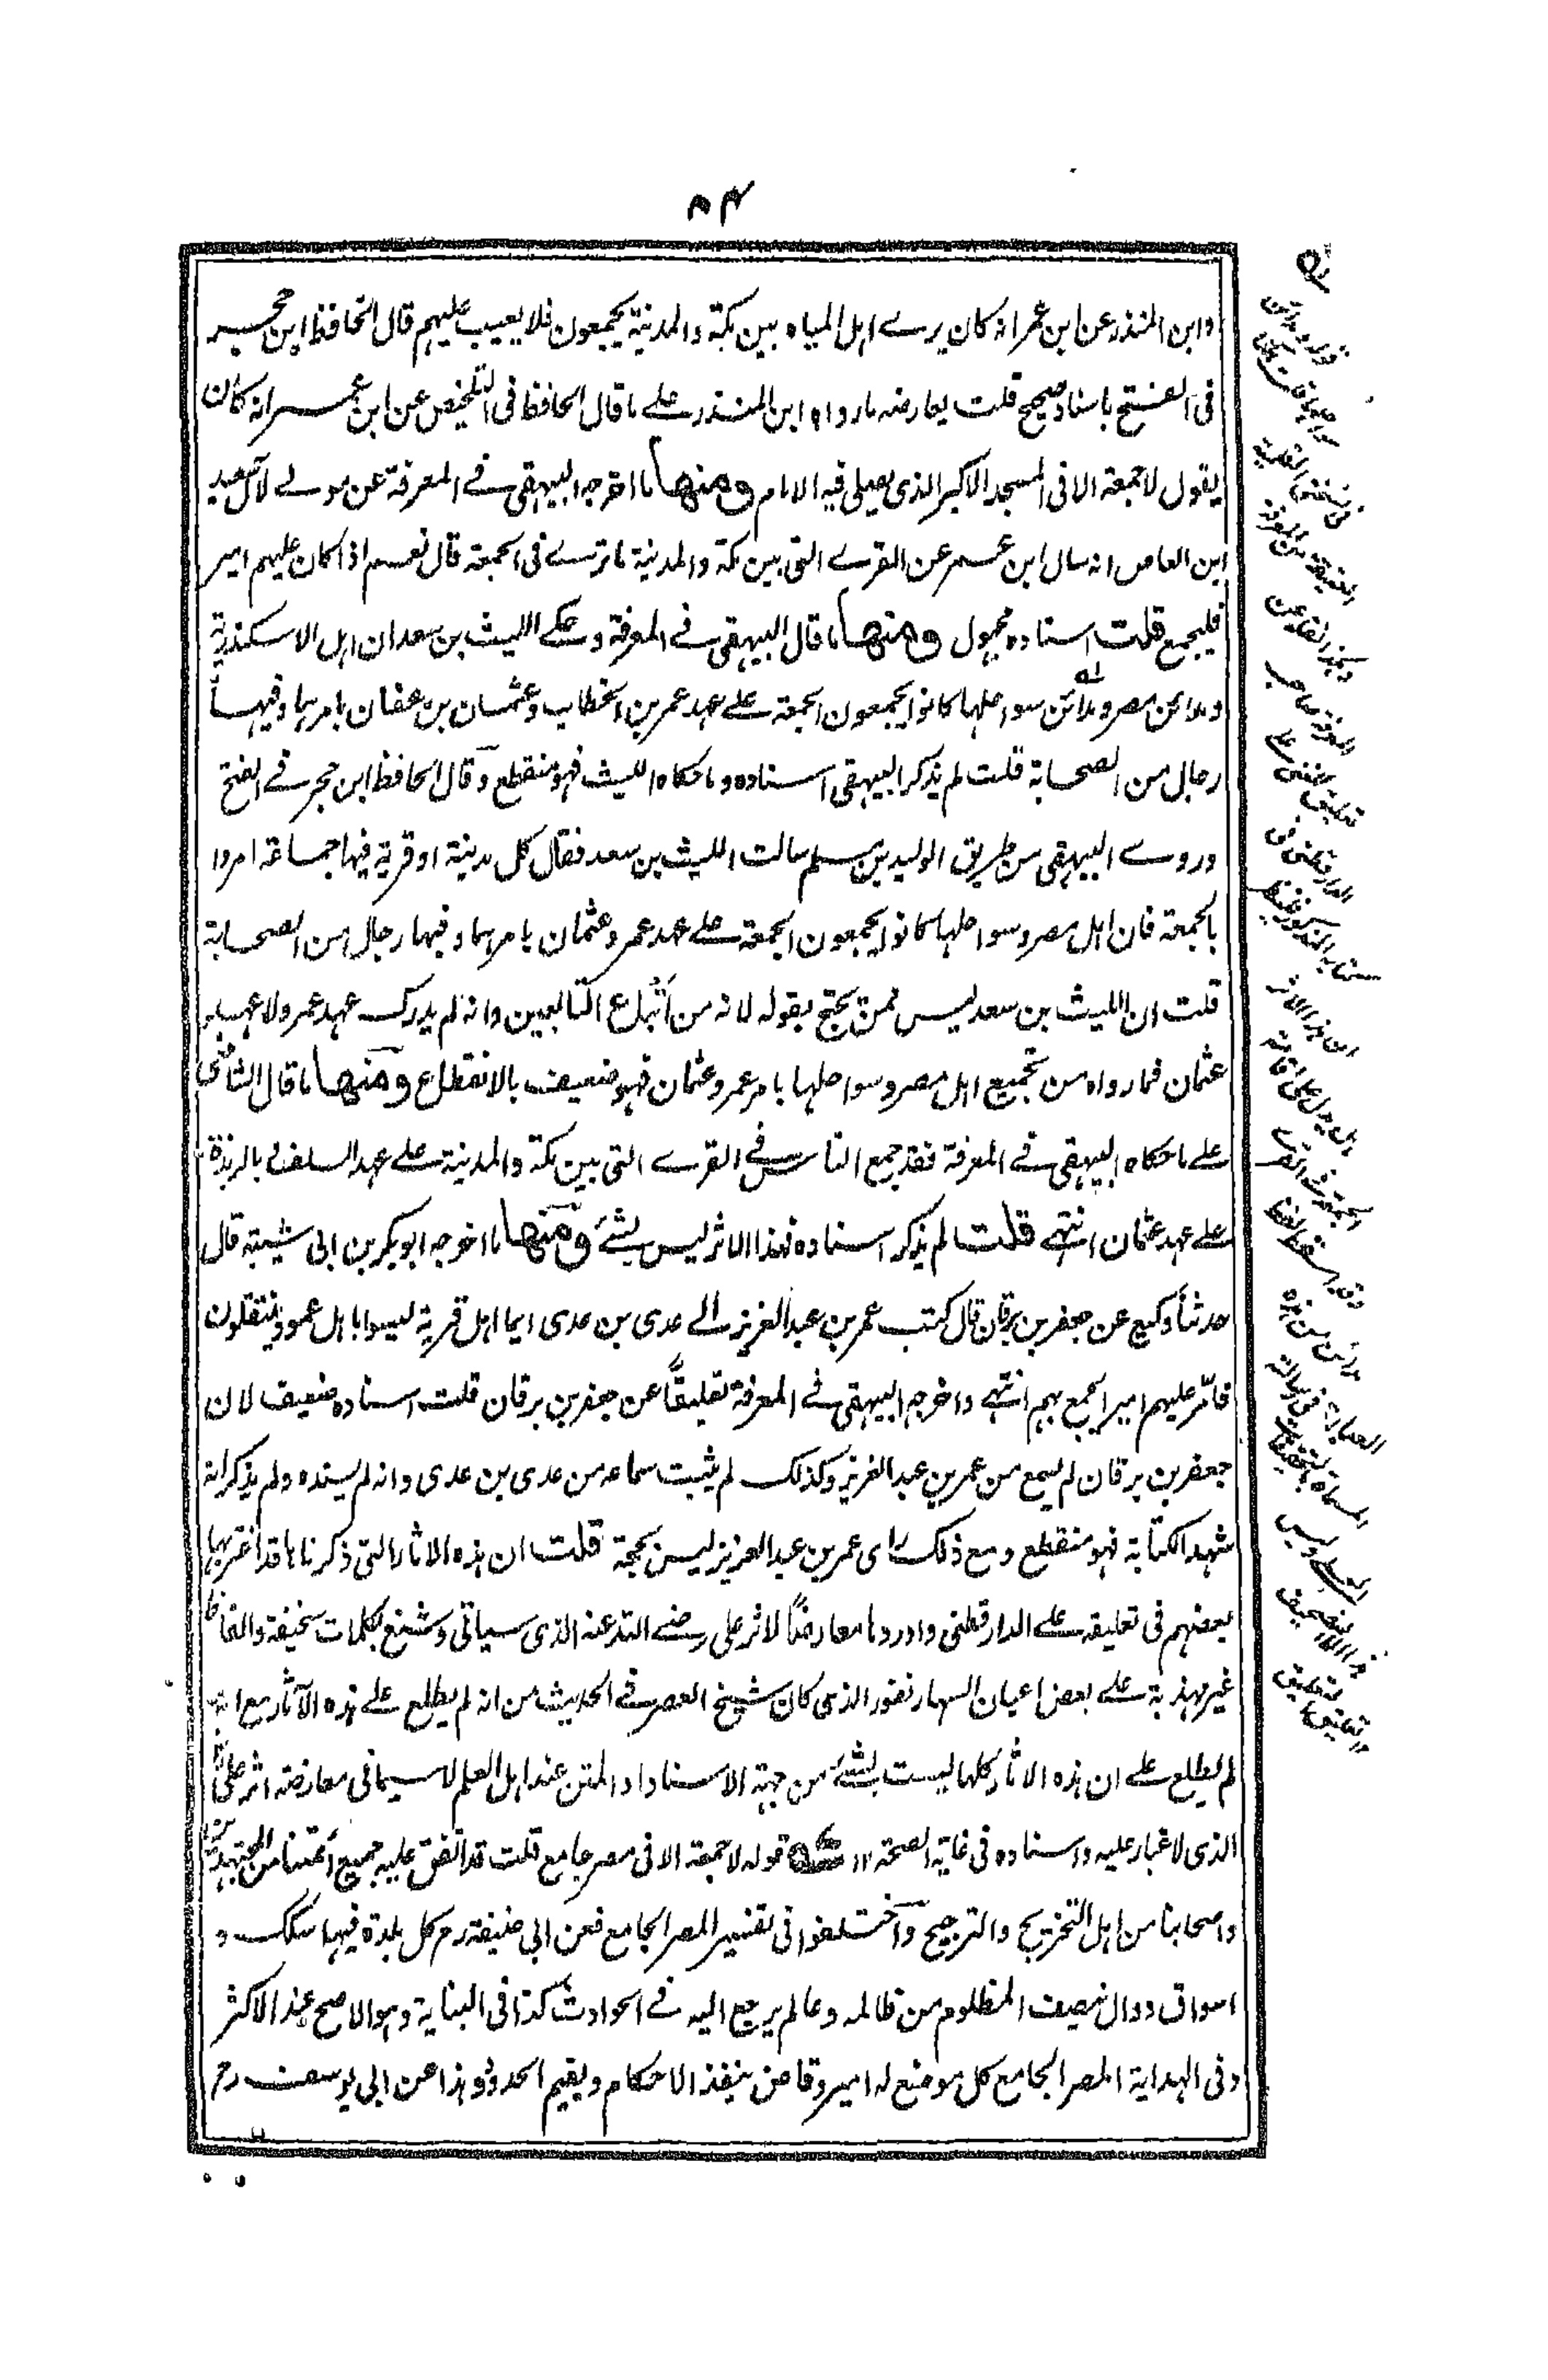 ٨٤
وابن المنذر عن ابن عمر انه كان يرى اهل المياه بين مكة والمدينة يجمعون فلا يعيب عليهم قال الحافظ ابن حجر
فى الفتح باسناد صحيح قلت يعارضه ما رواه ابن المنذر على ما قال الحافظ فى التلخيص عن ابن عمر انه كان
يقول لا جمعة الا فى المسجد الاكبر الذى يصلى فيه الامام ومنها ما اخرجه البيهقى فى المعرفة عن مولى لآل سعيد
ابن العاص انه سال ابن عمر عن القرى التى بين مكة والمدينة ما ترى فى الجمعة قال نعم اذا كان عليهم امير
فليجمع قلت اسناده مجهول ومنها ما قال البيهقى فى المعرفة وحكى الليث بن سعد ان اهل الاسكندرية
ومدائن مصر ومدائن سواحلها كانوا يجمعون الجمعة على عهد عمر بن الخطاب وعثمان بن عفان بامرهما وفيها
رجال من الصحابة قلت لم يذكر البيهقى اسناده وما حكاه الليث فهو منقطع وقال الحافظ ابن حجر فى الفتح
وروى البيهقى من طريق الوليد بن مسلم سالت الليث بن سعد فقال كل مدينة او قرية فيها جماعة امروا
بالجمعة فان اهل مصر وسواحلها كانوا يجمعون الجمعة على عهد عمر وعثمان بامرهما وفيها رجال من الصحابة
قلت ان الليث بن سعد ليس ممن يحتج بقوله لانه من اتباع التابعين وانه لم يدرك عهد عمر ولا عهد
عثمان فما رواه من تجميع اهل مصر وسواحلها بامر عمر وعثمان فهو ضعيف بالانقطاع ومنها ما قال الشافعى
على ما حكاه البيهقى فى المعرفة فقد جمع الناس فى القرى التى بين مكة والمدينة على عهد السلف بالربذة
على عهد عثمان انتهى قلت لم يذكر اسناده فهذا الاثر ليس بشئ ومنها ما اخرجه ابو بكر بن ابى شيبة قال
حدثنا وكيع عن جعفر بن برقان قال كتب عمر بن عبد العزيز الى عدى بن عدى ايما اهل قرية ليسوا باهل عمود ينتقلون
فامر عليهم اميرا يجمع بهم انتهى واخرجه البيهقى فى المعرفة تعليقاً عن جعفر بن برقان قلت اسناده ضعيف لان
جعفر بن برقان لم يسمع من عمر بن عبد العزيز وكذلك لم يثبت سماعه من عدى بن عدى وانه لم يسنده ولم يذكر انه
شهد الكتابة فهو منقطع ومع ذلك راى عمر بن عبد العزيز ليس بحجة قلت ان هذه الاثار التى ذكرناها قد اغتر بها
بعضهم فى تعليقه على الدارقطنى واوردها معارضاً لاثر على رضى الله عنه الذى سياتى وشنع بكلمات سخيفة والفاظ
غير مهذبة على بعض اعيان السهارنفور الذى كان شيخ العصر فى الحديث من انه لم يطلع على هذه الآثار مع انه
لم يطلع على ان هذه الاثار كلها ليست بشئ من جهة الاسناد او المتن عند اهل العلم لاسيما فى معارضة اثر على
الذى لا غبار عليه واسناده فى غاية الصحة ١٢ قوله لا جمعة الا فى مصر جامع قلت قد اتفق عليه جميع أئمتنا من المجتهدين
واصحابنا من اهل التخريج والترجيح واختلفوا فى تفسير المصر الجامع فعن ابى حنيفة رح كل بلدة فيها سكك و
اسواق ووال ينصف المظلوم من ظالمه وعالم يرجع اليه فى الحوادث كذا فى البناية وهو الاصح عند الاكثر
وفى الهداية المصر الجامع كل موضع له امير وقاض ينفذ الاحكام ويقيم الحدود وهذا عن ابى يوسف رح